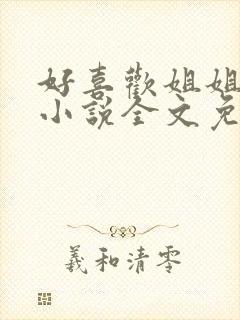 好喜歡姐姐
小說全文免
羲和清零